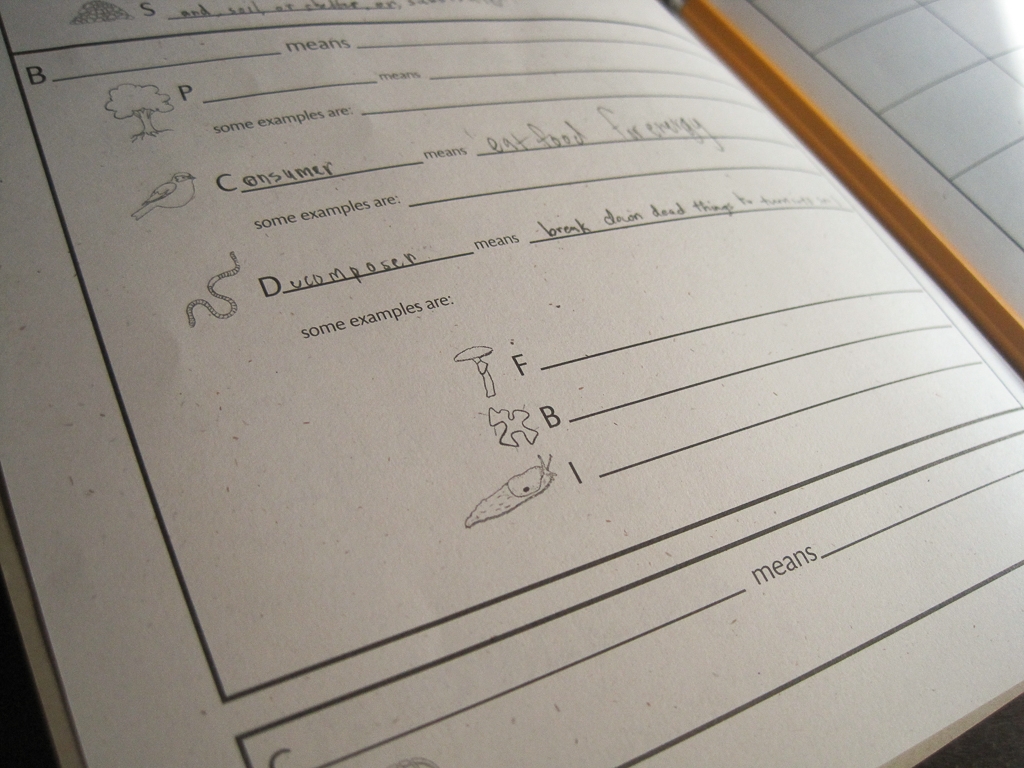 S and, soil, or shelter, or
B means
P means
some examples are:
Consumer means eat food for energy
some examples are:
Ducomposer means break down dead things to turn
some examples are:
F
B
I
means
C